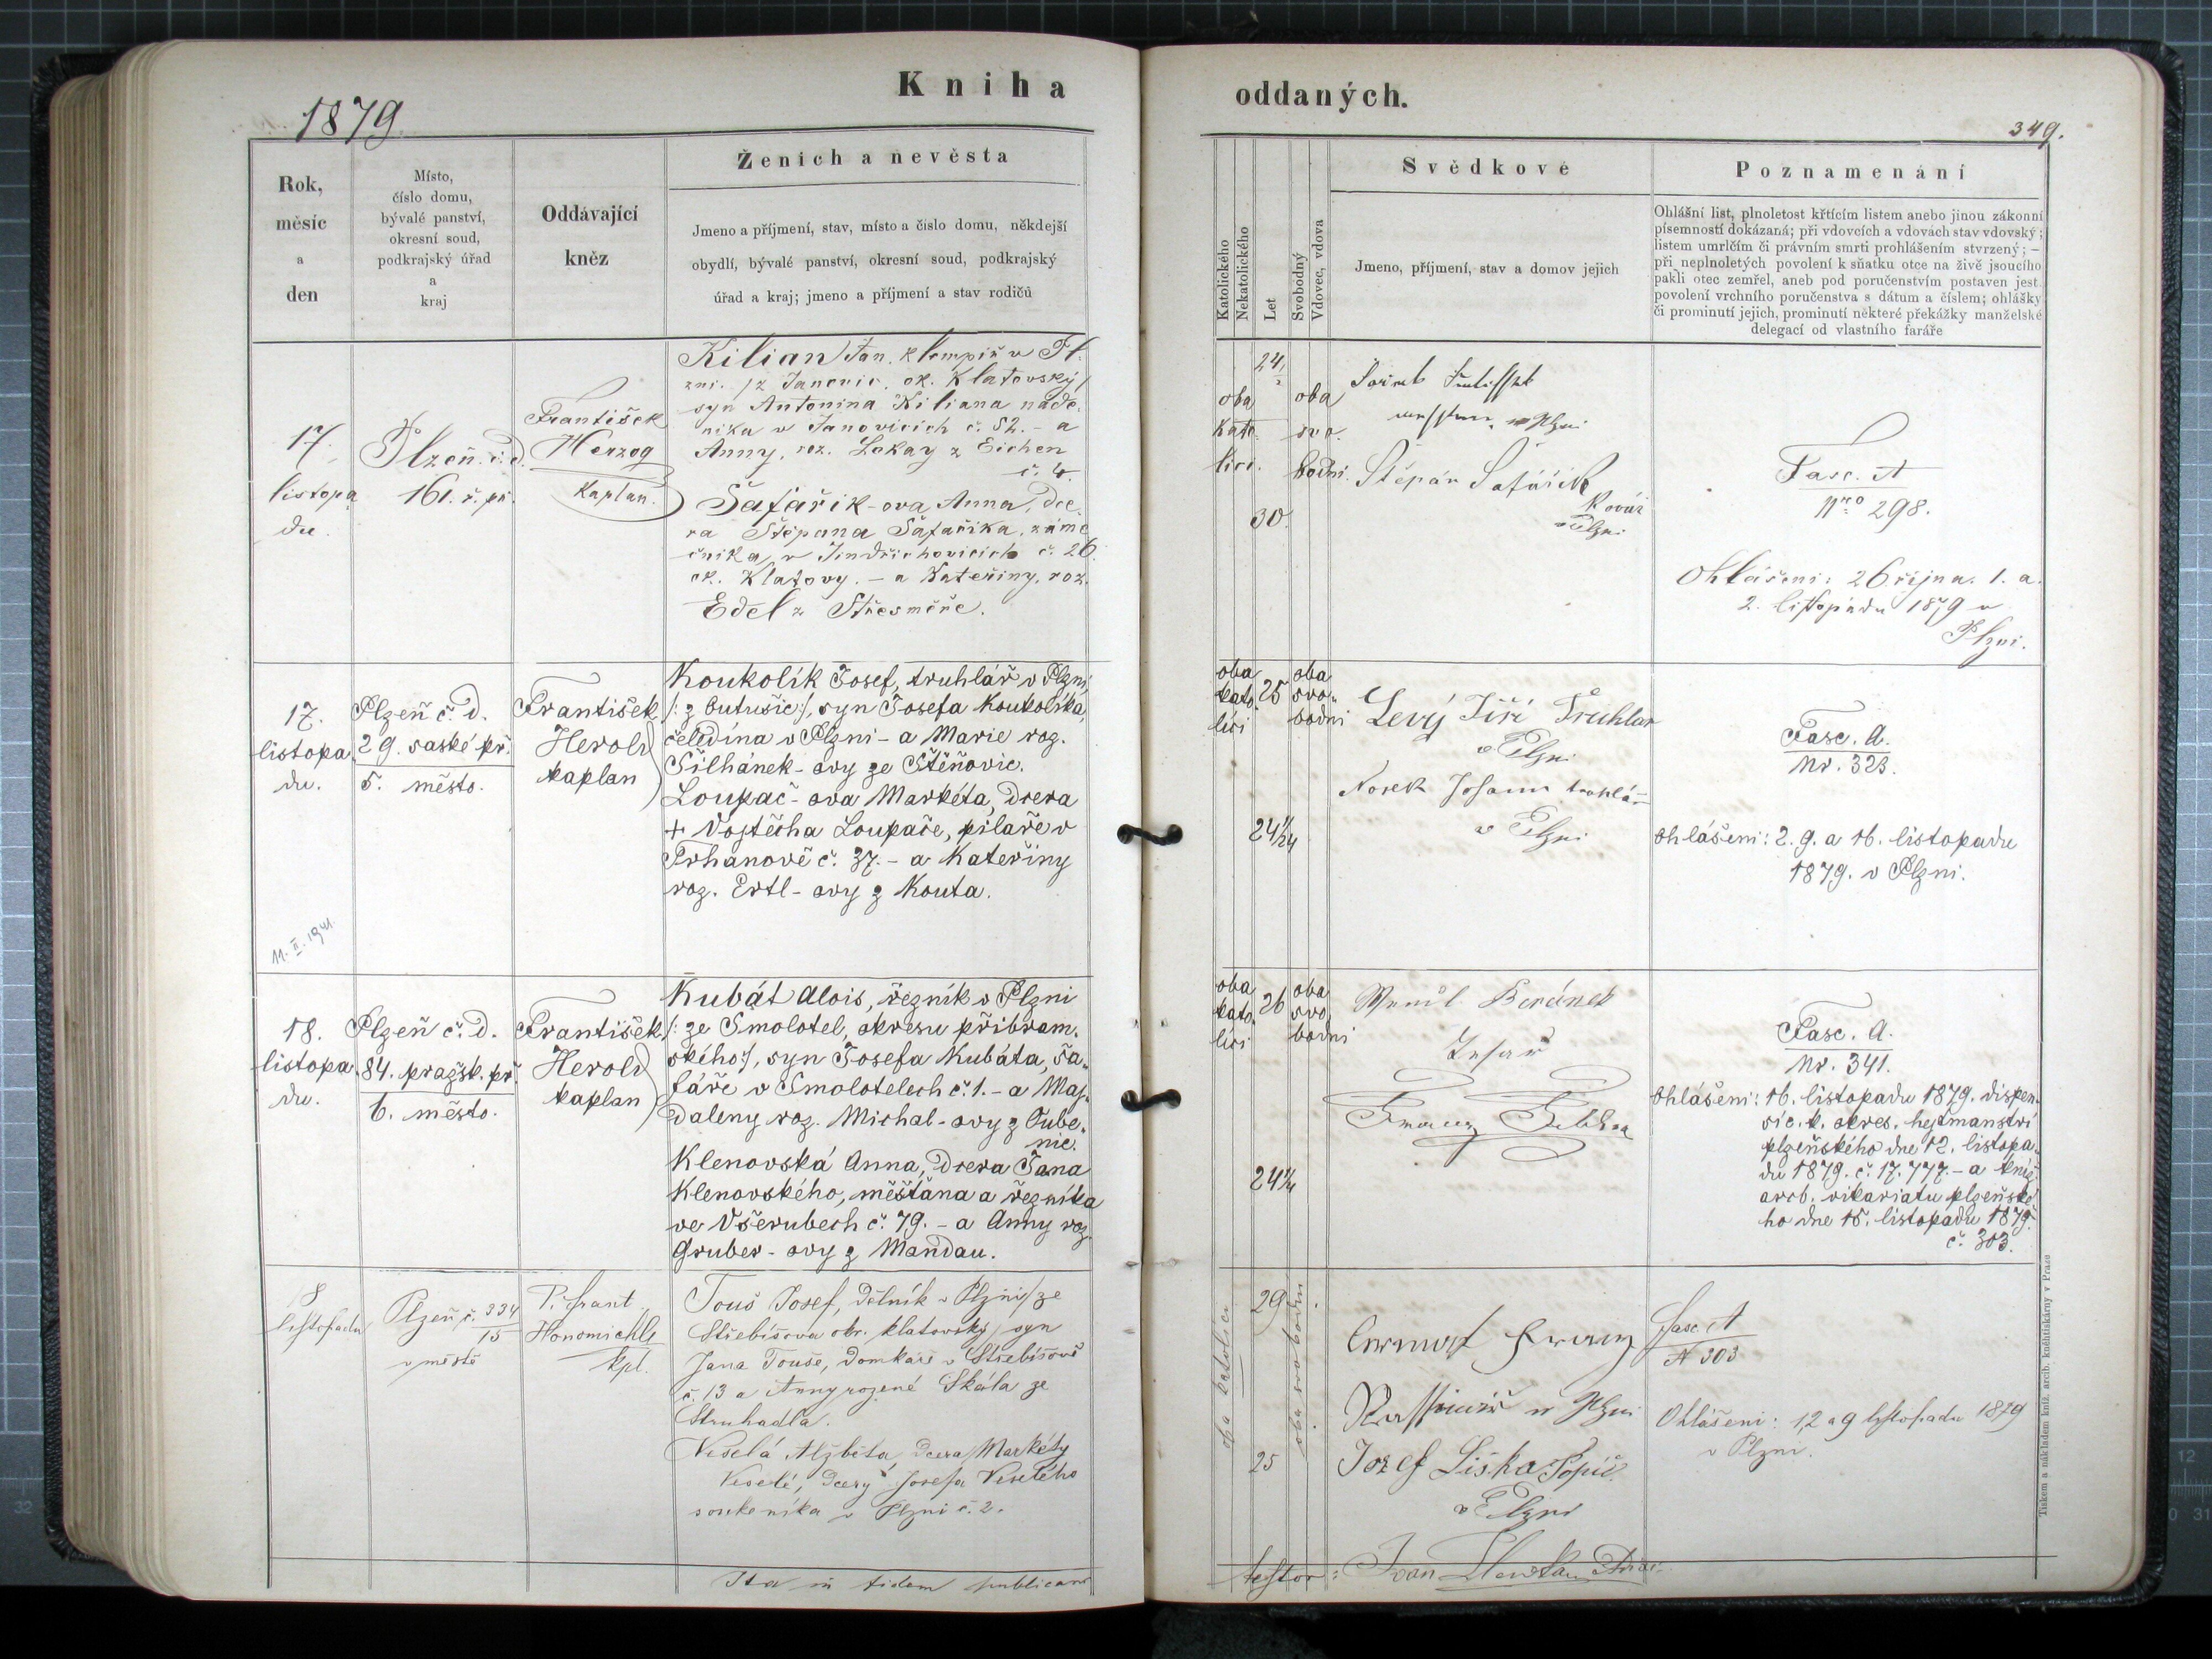 Kniha
oddaných.
1879
349.
Rok,
měsíc
a
den
Místo,
číslo domu,
bývalé panství,
okresní soud,
podkrajský úřad
a
kraj
Oddávající
kněz
Ženich a nevěsta
Jmeno a příjmení, stav, místo a číslo domu, někdejší
obydlí, bývalé panství, okresní soud, podkrajský
úřad a kraj; jmeno a příjmení a stav rodičů
Katolického
Nekatolického
Let
Svobodný
Vdovec, vdova
Svědkové
Jmeno, příjmení, stav a domov jejich
Poznamenání
Ohlášní list, plnoletost křtícím listem anebo jinou zákonní
písemností dokázaná; při vdovcích a vdovách stav vdovský;
listem umrlčím či právním smrti prohlášením stvrzený; —
při neplnoletých povolení k sňatku otce na živě jsoucího
pakli otec zemřel, aneb pod poručenstvím postaven jest
povolení vrchního poručenstva s dátum a číslem; ohlášky
či prominutí jejich, prominutí některé překážky manželské
delegací od vlastního faráře
17.
listopa
du.
Plzeň č. d.
161. ř. př.
František
Herzog
kaplan.
Kilian Jan, klempíř v Pl-
zni. /z Janovic, ok. Klatovský/
syn Antonina Kiliana náde-
níka v Janovicích č. 52. - a
Anny, roz. Lokay z Eichen
Šafařik-ova Anna, dce-
ra Štěpana Šafaříka, záme
čníka, v Jindřichovicích č. 26
ok. Klatovy. - a Kateřiny, roz.
Edel z Střesměře.
24
oba
kato
líci.
30.
oba
svo.
bodni.
v Plzni
Štěpán Šafařík
Kovář
v Plzni
Fasc. A
Nro 298.
Ohlášeni: 26. října. 1. a.
2. listopadu 1879 v
Plzni.
17.
listopa
du.
Plzeň č. d.
29. saské př.
5. město.
František
Herold
kaplan
Koukolík Josef, truhlář v Plzni,
/: z Butušic :/, syn Josefa Koukolíka,
čeledína v Plzni - a Marie roz.
Šilhánek-ovy ze Štěňovic.
Loupač-ova Markéta, dcera
+ Vojtěcha Loupače, pilaře v
Trhanově č. 37. - a Kateřiny
roz. Ertl-ovy z Kouta.
oba
kato
líci
25
oba
svo
bodni
24 1/24
Levý Jiří Truhlar
v Plzni
Nosek Johann truhlář
v Plzni
Fasc. A.
Nr. 323.
Ohlášeni: 2. 9. a 16. listopadu
1879. v Plzni.
11. II. 1941.
18.
listopa
du.
Plzeň č. d.
84. pražsk. př.
6. město.
František
Herold
kaplan
Kubát Alois, řezník v Plzni
/: ze Smolotel, okresu příbram-
ského :/, syn Josefa Kubáta, ša-
fáře v Smolotelech č. 1. - a Maj-
daleny roz. Michal-ovy z Tube-
nic.
Klenovská Anna, dcera Jana
Klenovského, měšťana a řezníka
ve Všerubech č. 79. - a Anny roz.
Gruber-ovy z Mandau.
oba
kato
líci
26
oba
svo
bodni
24 1/4
Beránek
Franz
Fasc. A.
Nr. 341.
Ohlášeni: 16. listopadu 1879. dispen-
sí c. k. okres. hejtmanství
plzeňského dne 12. listopa-
du 1879. č. 17.777. - a kníž.
arcb. vikariatu plzeňské-
ho dne 15. listopadu 1879.
č. 303.
18
listopadu
Plzeň č. 334
15
v městě
P. Frant.
Honomichl
kpl.
Touš Josef, dělník v Plzni/ze
Střebíšova okr. klatovský, syn
Jana Touše, domkáře v Střebíšově
č. 13 a Anny rozené Skála ze
Struhadla.
Veselá Alžběta, dcera Markéty
Veselé, dcery Josefa Veselého
soukeníka v Plzni č. 2.
oba katolíci
29
25
oba svobodni
Franz
v Plzni
Josef Liška Topič
v Plzni
Fasc A
N 303
Ohlášeni: 1, 2 a 9 listopadu 1879
v Plzni.
Ita in fidem publicam
testor:
Tiskem a nákladem kníž. arcib. knihtiskárny v Praze